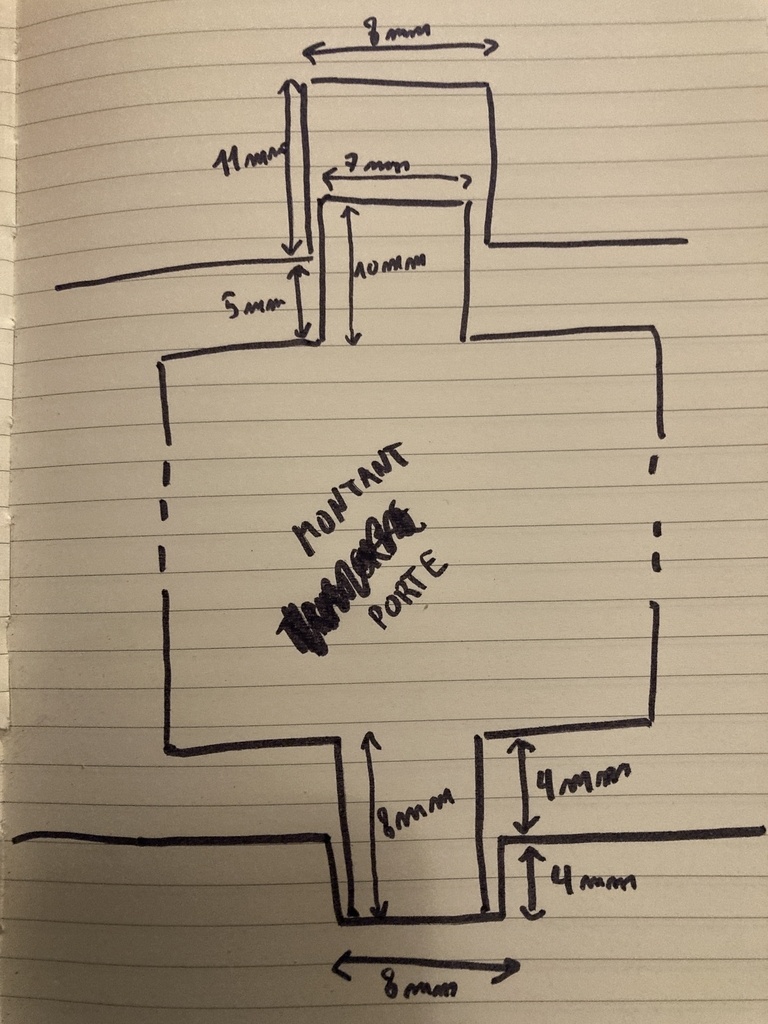 8mm
11mm
7mm
10mm
5mm
MONTANT
PORTE
8mm
4mm
4mm
8mm